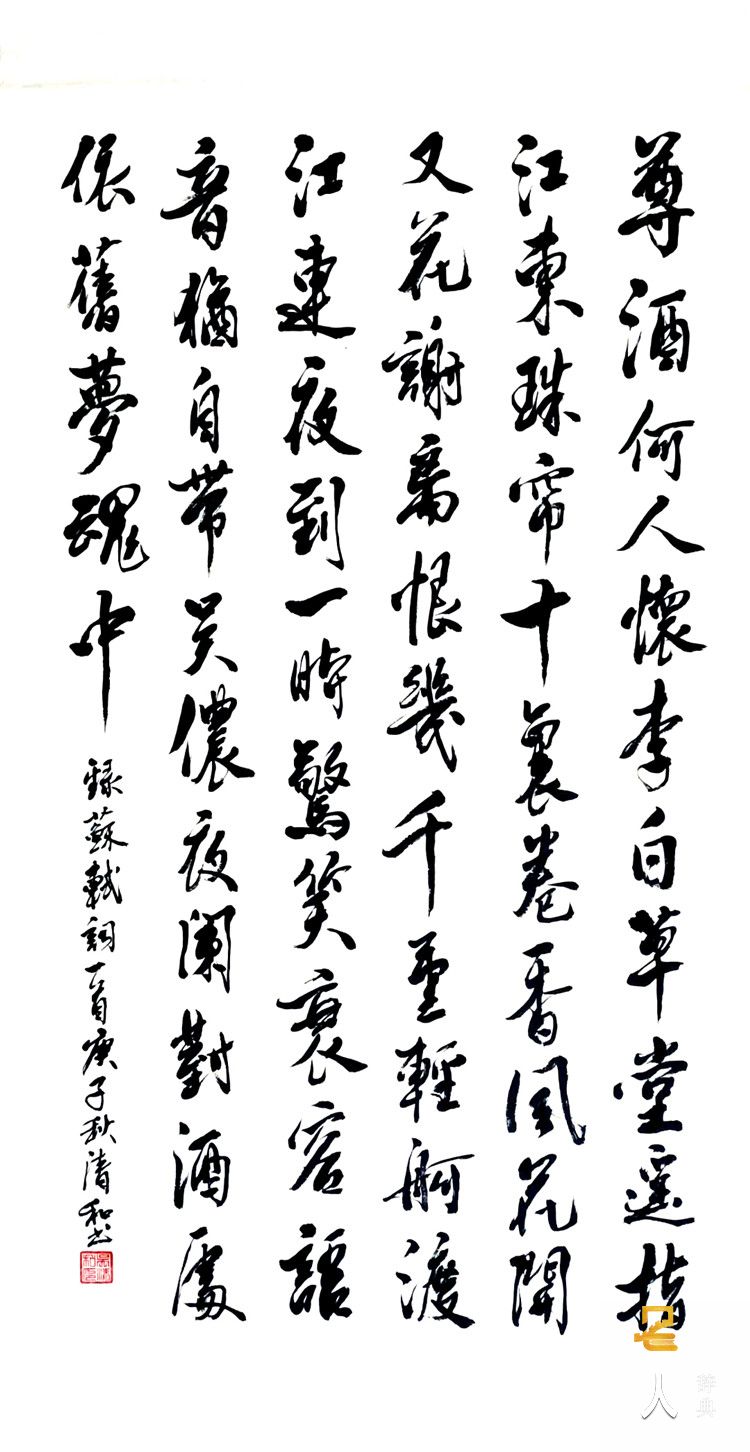 尊酒何人懷李白草堂遥指
江東珠帘十裏卷香風花開
又花謝离恨幾千重輕舸渡
江連夜到一時驚笑衰容語
音猶自帶吴儂夜闌對酒處
依舊夢魂中
錄蘇軾詞一首庚子秋清和书
人
辞典